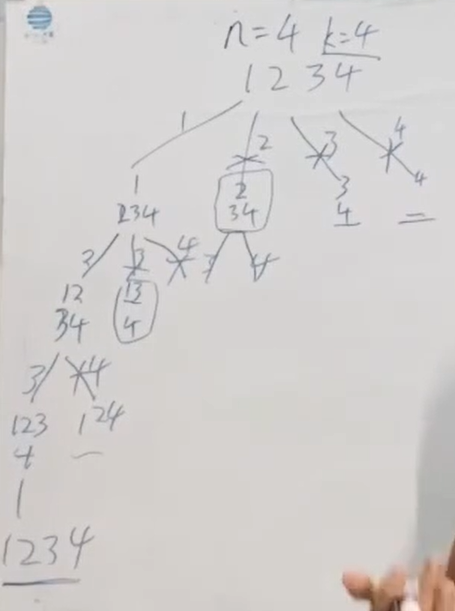 n=4 k=4
1 2 3 4
1 2 3 4
1 2 3 4
234 34 4 =
3 3 4 3 4
12 13
34 4
3 4
123 124
4 —
1
1234